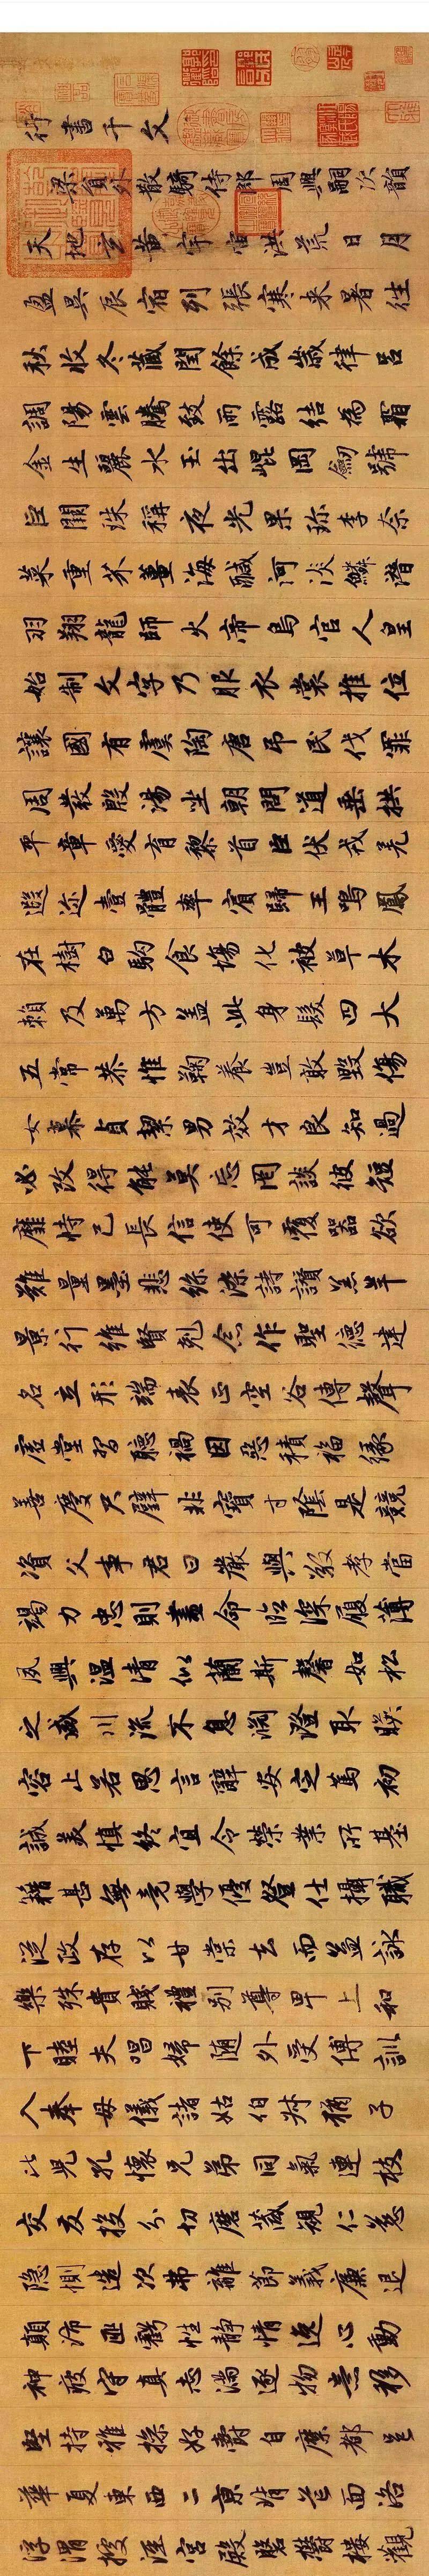 行書千文
梁員外散騎侍郎周興嗣次韻
天地玄黃宇宙洪荒日月
盈昃辰宿列張寒来暑往
秋收冬藏閏餘成歲律呂
調陽雲騰致雨露結為霜
金生麗水玉出崐岡劒號
巨闕珠稱夜光果珎李柰
菜重芥薑海醎河淡鱗潛
羽翔龍師火帝鳥官人皇
始制文字乃服衣裳推位
讓國有虞陶唐弔民伐罪
周發殷湯坐朝問道垂拱
平章愛育黎首臣伏戎羌
遐迩壹體率賓歸王鳴鳳
在樹白駒食場化被草木
賴及萬方盖此身髮四大
五常恭惟鞠養豈敢毀傷
女慕貞絜男效才良知過
必改得能莫忘罔談彼短
靡恃己長信使可覆器欲
難量墨悲絲染詩讚羔羊
景行維賢剋念作聖德建
名立形端表正空谷傳聲
虛堂習聽禍因惡積福緣
善慶尺璧非寶寸陰是競
資父事君曰嚴與敬孝當
竭力忠則盡命臨深履薄
夙興温清似蘭斯馨如松
之盛川流不息淵澄取暎
容止若思言辭安定篤初
誠美慎終宜令榮業所基
籍甚無竟學優登仕攝職
從政存以甘棠去而益詠
樂殊貴賤禮別尊卑上和
下睦夫唱婦随外受傅訓
入奉母儀諸姑伯叔猶子
比兒孔懷兄弟同氣連枝
交友投分切磨箴規仁慈
隐惻造次弗離節義廉退
顛沛匪虧性靜情逸心動
神疲守真志滿逐物意移
堅持雅操好爵自縻都邑
華夏東西二京背芒面洛
浮渭據涇宮殿盤欝樓觀